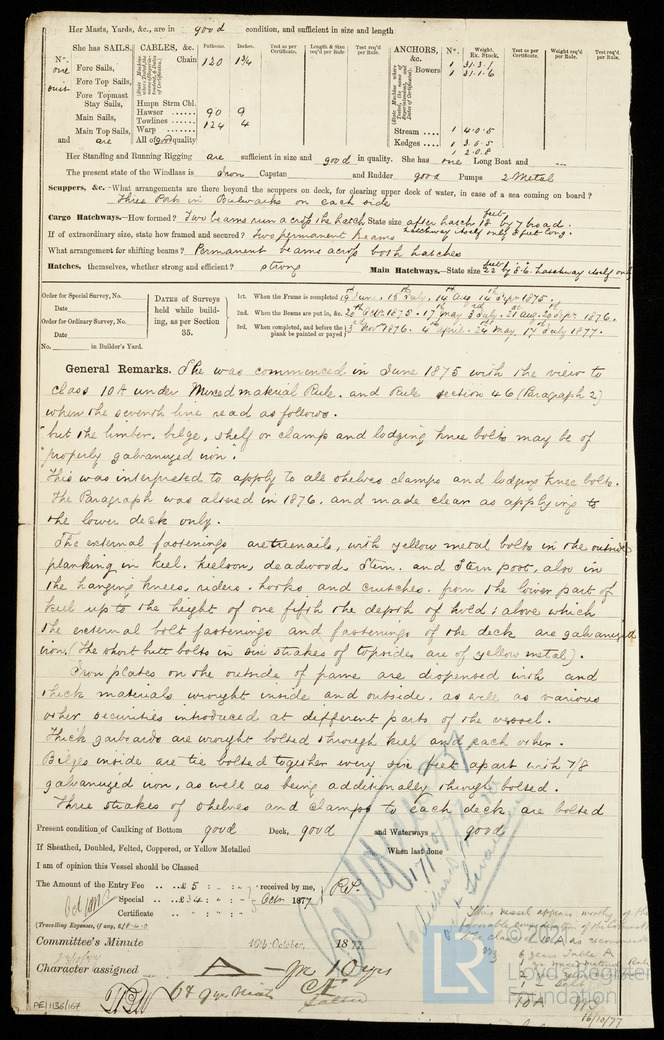 Her Masts, Yards, &c., are in good condition, and sufficient in size and length
She has SAILS.
CABLES, &c.
Fathoms.
Inches.
Test as per Certificate.
Length & Size req'd per Rule
Test req'd per Rule.
ANCHORS, &c.
Nº.
Weight. Ex. Stock.
Test as per Certificate.
Weight req'd per Rule.
Test req'd per Rule.
Nº.
one
Fore Sails,
Chain 120 1¾
Bowers 1 31.3.1
1 31.1.6
Fore Top Sails,
Fore Topmast Stay Sails,
Hmpn Strm Cbl.
Hawser ...... 90 9
Main Sails,
Towlines ...... 124 4
Stream .... 1 4.0.5
Main Top Sails,
Warp ......
Kedges .... 1 3.0.5
1 2.0.8
and are All of good quality
Her Standing and Running Rigging are sufficient in size and good in quality. She has one Long Boat and
The present state of the Windlass is Iron Capstan and Rudder good Pumps 2 Metal
Scuppers, &c.—What arrangements are there beyond the scuppers on deck, for clearing upper deck of water, in case of a sea coming on board?
Three Ports in Bulwarks on each side
Cargo Hatchways.—How formed? Two beams run across the hatch State size after hatch 18 feet by 7 broad.
If of extraordinary size, state how framed and secured? two permanent beams hatchway itself only 8 feet long.
What arrangement for shifting beams? Permanent beams across both hatches
Hatches, themselves, whether strong and efficient? strong Main Hatchways.—State size 22 feet by 8.6. hatchway itself only
Order for Special Survey, No.
Date
Order for Ordinary Survey, No.
Date
No. in Builder's Yard.
DATES of Surveys held while building, as per Section 35.
1st. When the Frame is completed 19th June, 15 July, 14th Aug. 14th Sept. 1875.
2nd. When the Beams are put in, &c. 20th Sept. 1875. 17th May 3rd July. 21 Aug. 20 Sept. 1876.
3rd. When completed, and before the plank be painted or payed 3rd Nov. 1876. 4th April. 24th May 17th July 1877.
General Remarks. She was commenced in June 1875 with the view to
class 10A under Mixed material Rule. and Rule section 46 (Paragraph 2)
when the seventh line read as follows.
"but the limber, bilge, shelf or clamp and lodging knee bolts may be of
"properly galvanized iron".
This was interpreted to apply to all shelves clamps and lodging knee bolts.
The Paragraph was altered in 1876. and made clear as applying to
the lower deck only.
The external fastenings are treenails, with yellow metal bolts in the outside
planking in keel. keelson, deadwoods, stem. and Stern post, also in
the hanging knees, riders. hooks and crutches. from the lower part of
keel up to the height of one fifth the depth of hold; above which
the external bolt fastenings and fastenings of the deck are galvanized
iron. (The short butt bolts in six strakes of topsides are of yellow metal).
Iron plates on the outside of frame are dispensed with and
thick materials wrought inside and outside, as well as various
other securities introduced at different parts of the vessel.
Thick garboards are wrought bolted through keel and each other.
Bilges inside are tie bolted together every six feet apart with 7/8
galvanized iron, as well as being additionally through bolted.
Three strakes of shelves and clamps to each deck are bolted
Present condition of Caulking of Bottom good Deck, good and Waterways good
If Sheathed, Doubled, Felted, Coppered, or Yellow Metalled When last done
I am of opinion this Vessel should be Classed
The Amount of the Entry Fee .. £5 : : received by me, R.S.
Special .. £34 : : 5 Octr. 1877
Certificate .. : :
(Travelling Expenses, if any, £18.4.0
Committee's Minute 16th October, 1877
Character assigned A for 10 yrs
This vessel appears worthy of the
favorable consideration of the Committee
to be classed 10A as recommended
viz
6 years Table A
2 " mixed material Rule
1 " Salt
10A
16/10/77
17/10/77
PE1136/167
LR
© 2021
Lloyd's Register
Foundation